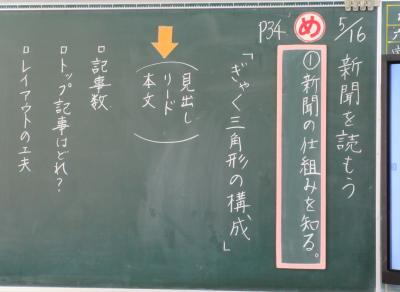 5/16
新聞を読もう
め
P34
①新聞の仕組みを知る。
「ぎゃく三角形の構成」
見出し
リード
本文
記事数
トップ記事はどれ?
レイアウトの工夫